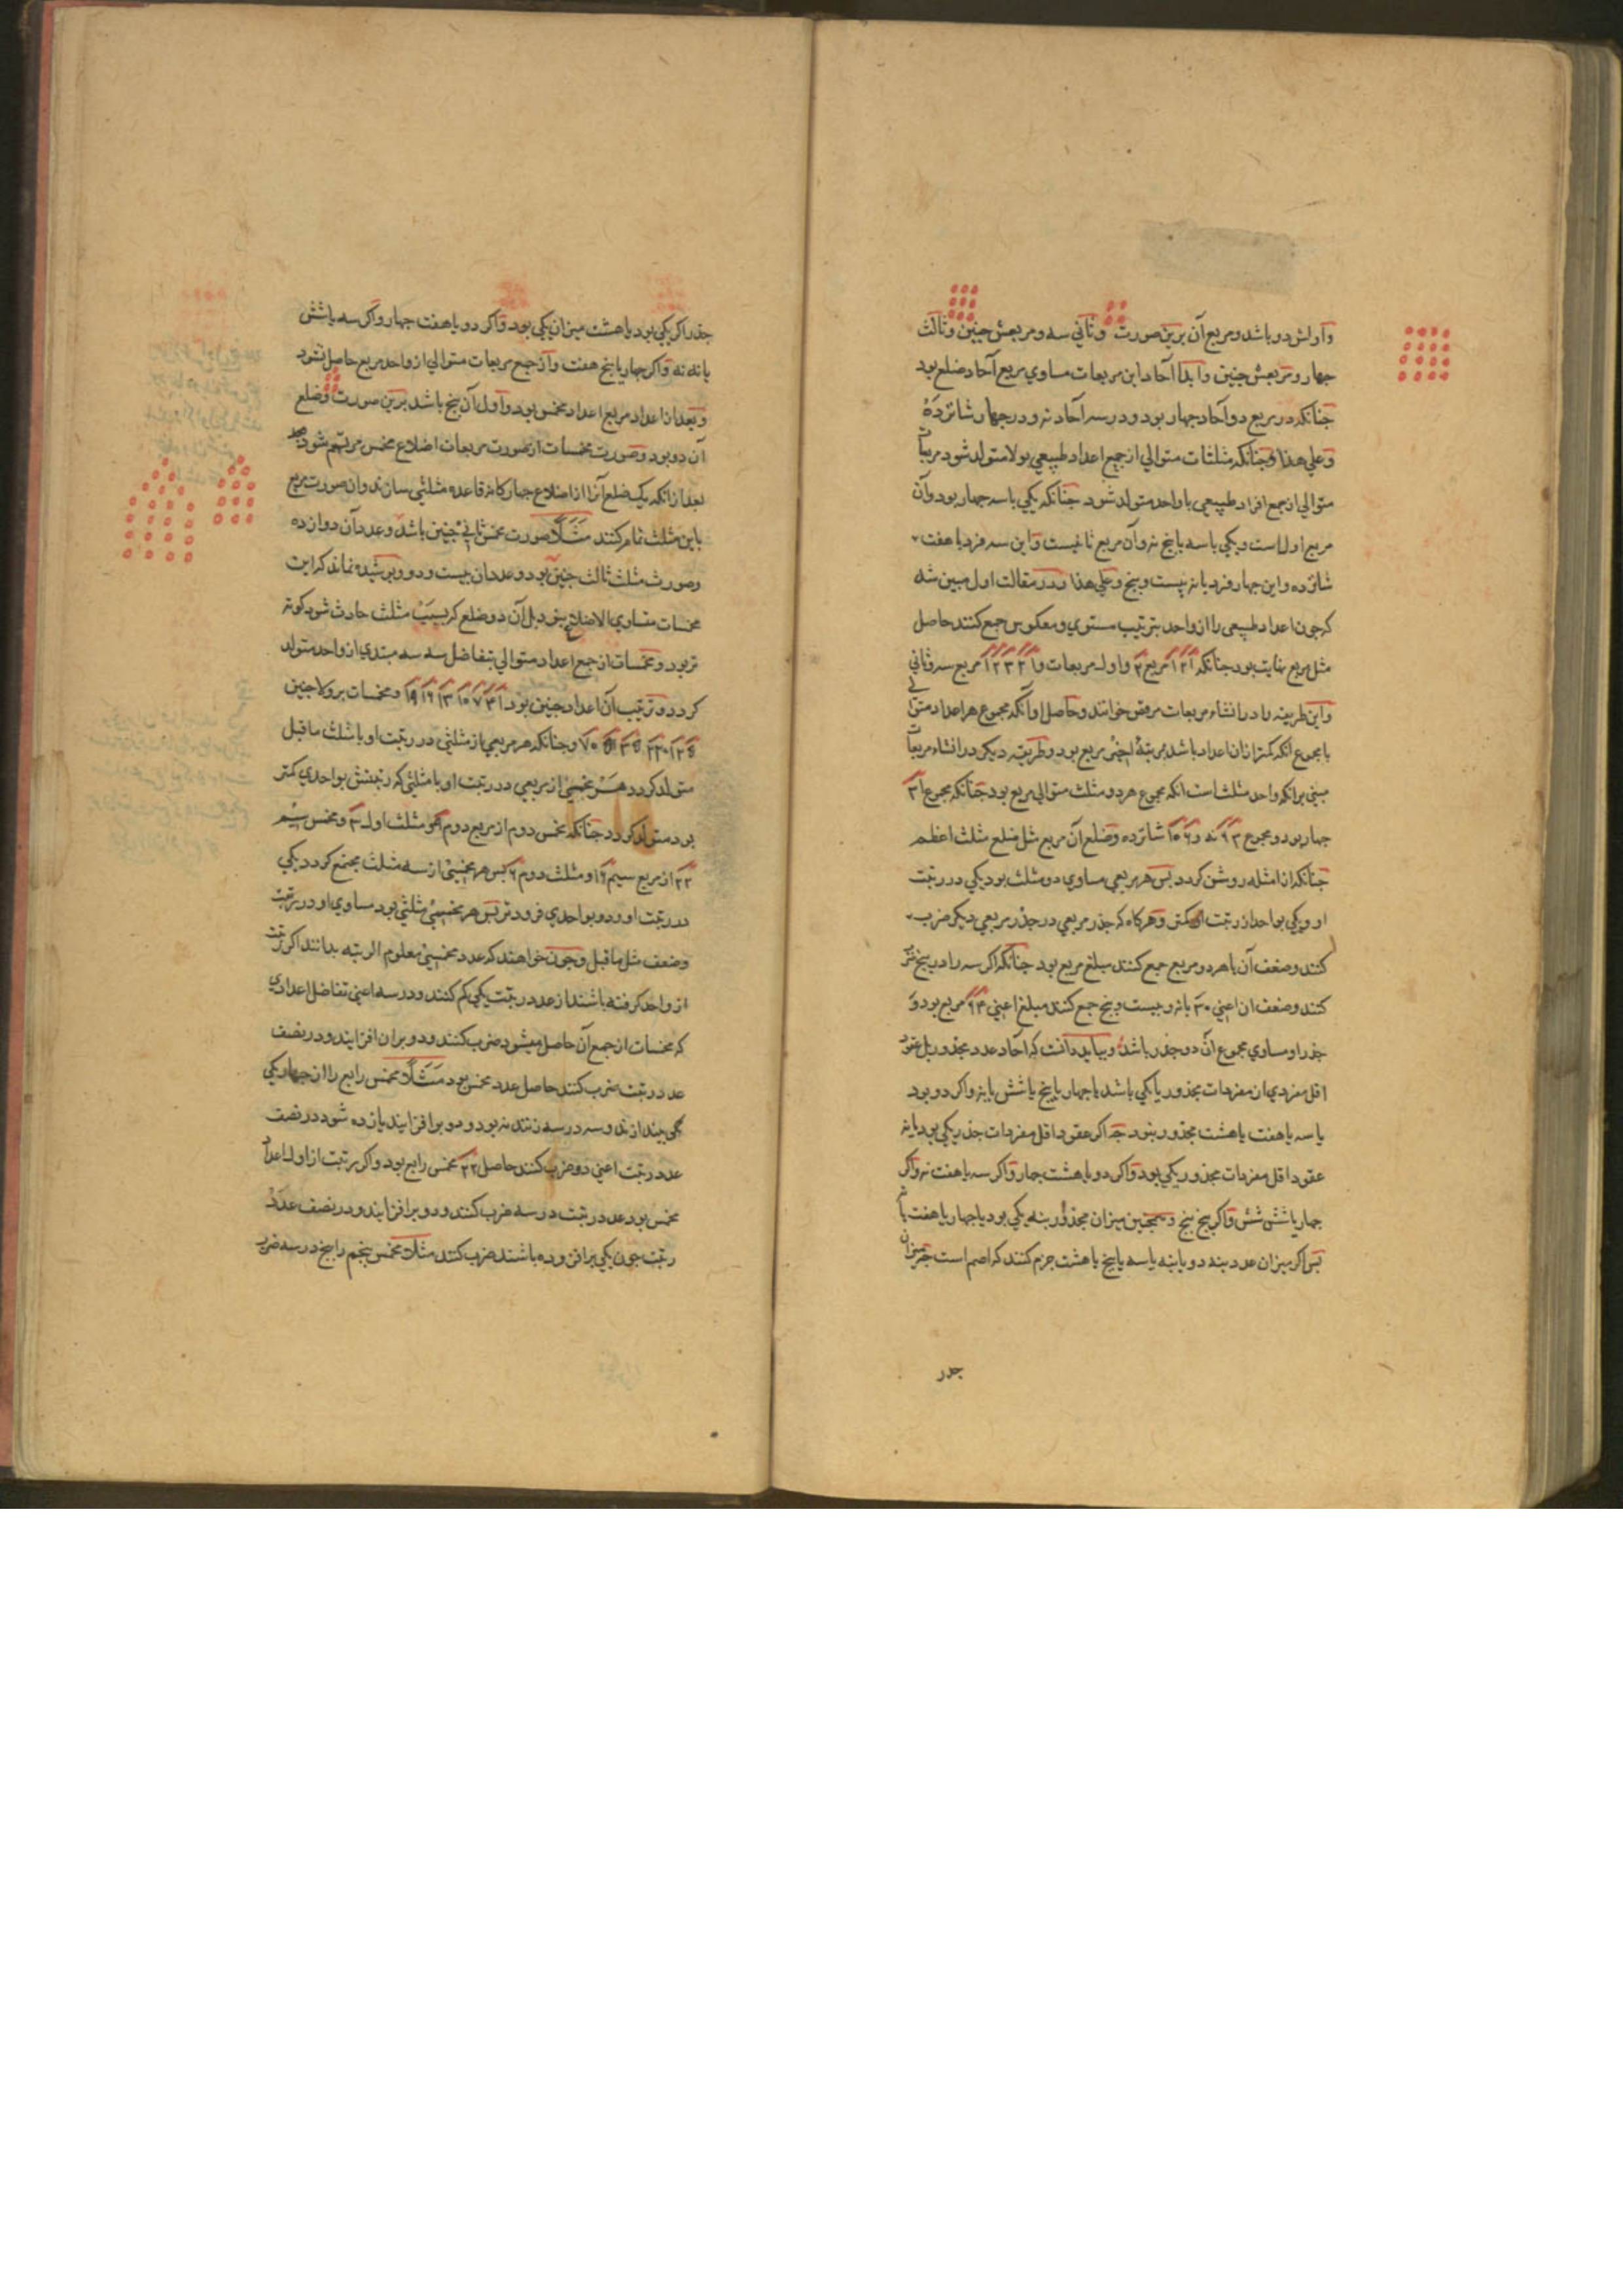 واولش دو باشد و مربع آن برین صورت وثانی سه و مربعش چنین وثالث
جهار و مربعش جنین وابدا آحاد این مربعات مساوی مربع آحاد ضلع بود
جنانکه در مربع دو آحاد جهار بود و در سه آحاد نه و در جهار شانزده
وعلی هذا وجنانکه مثلثات متوالی از جمع اعداد طبیعی بولا متولد شود مربعات
متوالی از جمع افراد طبیعی با واحد متولد شود جنانکه یکی با سه جهار بود وآن
مربع اول است ویکی با سه با پنج نه وآن مربع ثانیست واین سه فرد با هفت
شانزده واین جهار فرد با نه بیست وپنج وعلی هذا ودر مقالت اول مبین شد
که جون اعداد طبیعی را از واحد بترتیب مستوی ومعکوس جمع کنند حاصل
مثل مربع نهایت بود جنانکه ۱۲۱ مربع ۲ واول مربعات و۱۲۳۲۱ مربع سه وثانی
واین طریقه را در انشاء مربعات خوانند وحاصل او آنکه مجموع هر اعداد متوالی
با مجموع آنکه کمتر از ان اعداد باشد بمرتبهٔ اخیر مربع بود وطریقه دیکر در انشاء مربعات
مبنی بر آنکه واحد مثلث است آنکه مجموع هر دو مثلث متوالی مربع بود جنانکه مجموع ۱ ۳
جهار بود ومجموع ۳ ۶ نه و۶ ۱۰ شانزده وضلع آن مربع مثل ضلع مثلث اعظم
جنانکه از امثله روشن کردد بس هر مربعی مساوی دو مثلث بود یکی در رتبت
او ویکی بواحد از رتبت او کمتر وهرکاه که جذر مربعی در جذر مربعی دیکر ضرب
کنند وضعف آن با هر دو مربع جمع کنند مبلغ مربع بود جنانکه اکر سه را در پنج ضرب
کنند وضعف ان اعنی ۳۰ با نه وبیست وپنج جمع کنند مبلغ اعنی ۶۴ مربع بود و
جذر او مساوی مجموع آن دو جذر باشد وبباید دانست که آحاد عدد مجذور بل عقود
اقل مفردی از مفردات مجذور یا یکی باشد یا جهار یا پنج یا شش یا نه واکر دو بود
یا سه یا هفت یا هشت مجذور نبود جه اکر عقود اقل مفردات جذر یکی بود یا نه
عقود اقل مفردات مجذور یکی بود واکر دو یا هشت جهار واکر سه یا هفت نه واکر
جهار یا شش شش واکر پنج پنج وهمجنین میزان مجذور بنه یکی بود یا جهار یا هفت یا نه
بس اکر میزان عدد بنه دو یا سه یا پنج یا هشت جزم کنند که اصم است جه میزان
جدر
جذر اکر یکی بود یا هشت میزان یکی بود واکر دو یا هفت جهار واکر سه یا شش
یا نه نه واکر جهار یا پنج هفت واز جمع مربعات متوالی از واحد مربع حاصل نشود
وبعد از اعداد مربع اعداد مخمس بود واول آن پنج باشد برین صورت وضلع
آن دو بود وصورت مخمسات از صورت مربعات اضلاع مخمس مرتسم شود
بعد از انکه یک ضلع آنرا از اضلاع جهارکانه قاعده مثلثی سازند وان صورت مربع
باین مثلث تمام کنند مثلا صورت مخمس ثانی جنین باشد وعدد آن دوازده
وصورت مثلث ثالث جنین بود وعدد ان بیست ودو وپوشیده نماند که این
مخمسات متساوی الاضلاع نبود بل آن دو ضلع که بسبب مثلث حادث شود کوتاه
تر بود ومخمسات از جمع اعداد متوالی بتفاضل سه سه مبتدی از واحد متولد
کردد وترتیب آن اعداد جنین بود ۱ ۴ ۷ ۱۰ ۱۳ ۱۶ ۱۹ ومخمسات بر ولا جنین
۵ ۱۲ ۲۲ ۳۵ ۵۱ ۷۰ وجنانکه هر مربعی از مثلثی در رتبت او با مثلث ماقبل
متولد کردد هر مخمس از مربعی در رتبت او با مثلثی که رتبتش بواحدی کمتر
بود متولد کردد جنانکه مخمس دوم از مربع دوم ۹ ومثلث اول ۳ ومخمس سیم
۲۲ از مربع سیم ۱۶ ومثلث دوم ۶ بس هر مخمسی از سه مثلث مجتمع کردد یکی
در رتبت او ودو بواحدی فروتر بس هر مخمسی مثلثی بود مساوی او در رتبت
وضعف مثل ماقبل وجون خواهند که عدد مخمسی معلوم الرتبه بدانند اکر رتبت
از واحد کرفته باشند از عدد رتبت یکی کم کنند ودر سه اعنی تفاضل اعدادی
که مخمسات از جمع آن حاصل میشود ضرب کنند ودو بر ان افزایند ودر نصف
عدد رتبت ضرب کنند حاصل عدد مخمس بود مثلا مخمس رابع را از جهار یکی
بیندازند وسه در سه زنند نه بود ودو بر افزایند یازده شود در نصف
عدد رتبت اعنی دو ضرب کنند حاصل ۲۲ مخمس رابع بود واکر رتبت از اول اعداد
مخمس بود عدد رتبت در سه ضرب کنند ودو بر افزایند ودر نصف عدد
رتبت جون یکی بر افزوده باشند ضرب کنند مثلا مخمس پنجم را پنج در سه ضرب